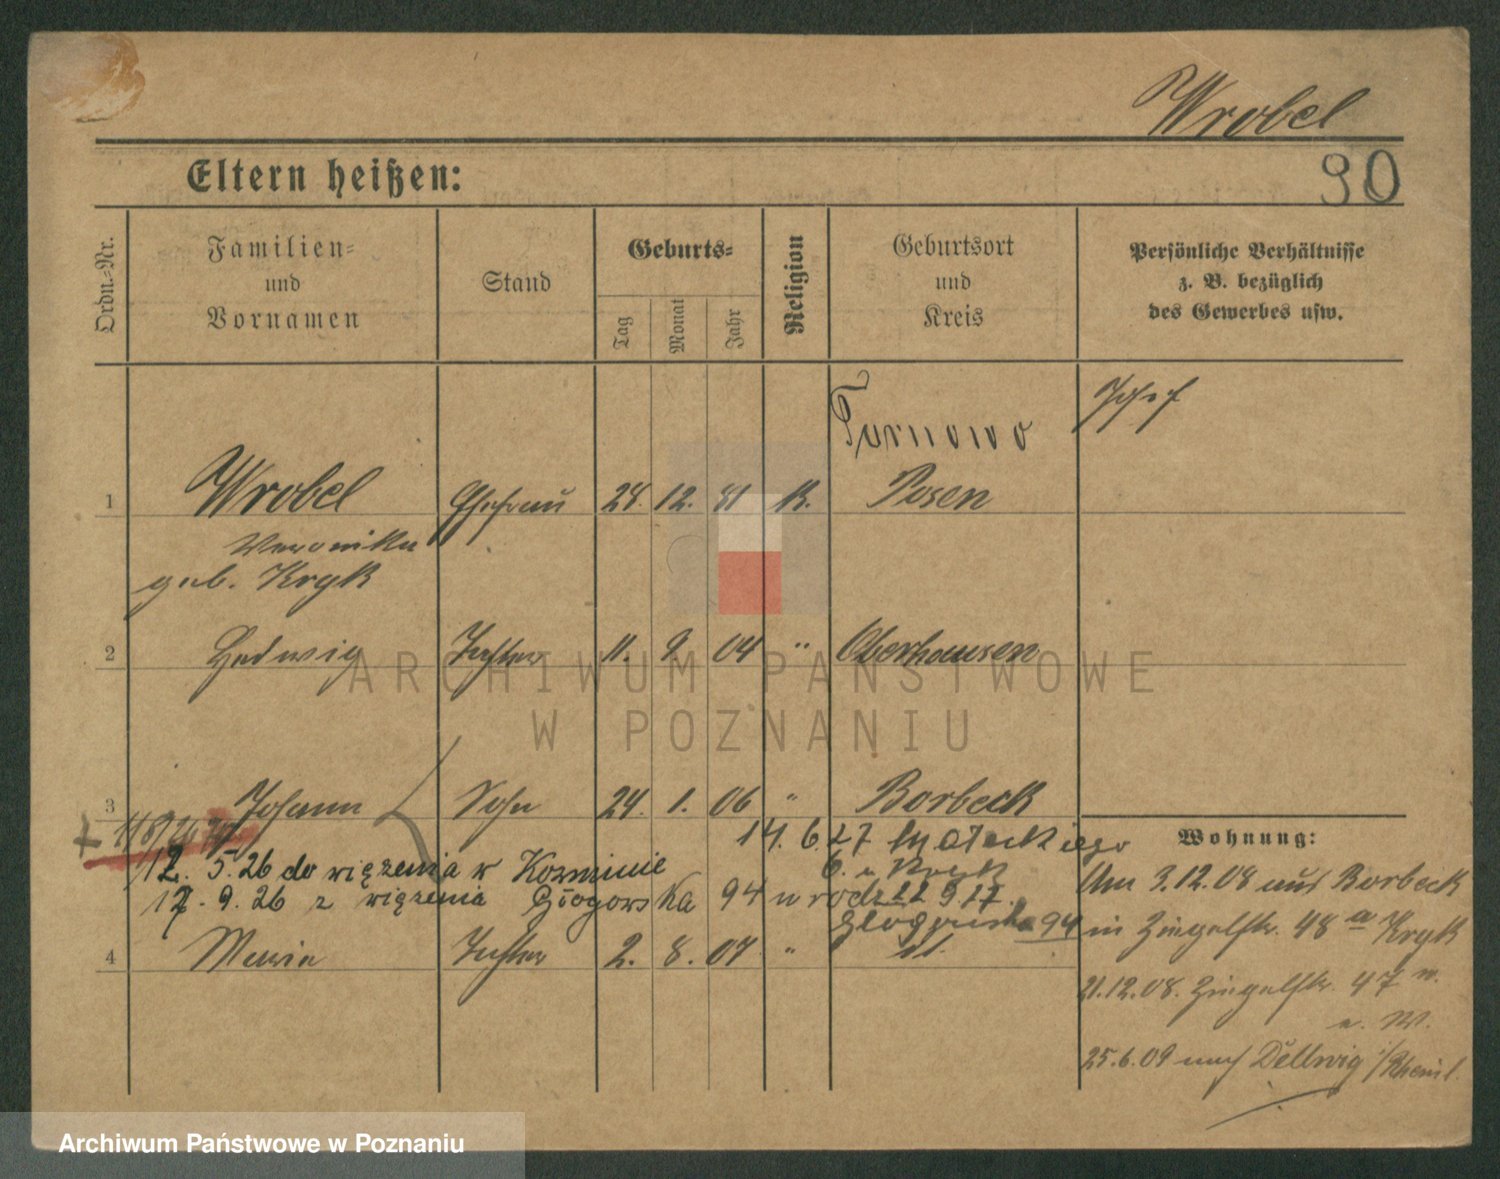 Wrobel
Eltern heißen:
90
Ordn.-Nr.
Familien-
und
Vornamen
Stand
Geburts-
Tag
Monat
Jahr
Religion
Geburtsort
und
Kreis
Persönliche Verhältnisse
z. B. bezüglich
des Gewerbes usw.
Josef
Turnowo
1 Wrobel Ehefrau 28. 12. 81 K. Posen
Veronika
geb. Kryk
2 Hedwig Tochter 11. 9. 04 " Oberhausen
3 Johann Sohn 24. 1. 06 " Borbeck
14. 6. 27
12. 5. 26 do więzienia w Kozminie
17. 9. 26 z więzienia Głogowska 94 u rodz
94
4 Maria Tochter 2. 8. 07 "
Wohnung:
Am 3.12.08 aus Borbeck
in Ziegelstr. 48 a Kryk
21.12.08. Ziegelstr. 47
25.6.09 nach Dellwig
ARCHIWUM PAŃSTWOWE
W POZNANIU
Archiwum Państwowe w Poznaniu